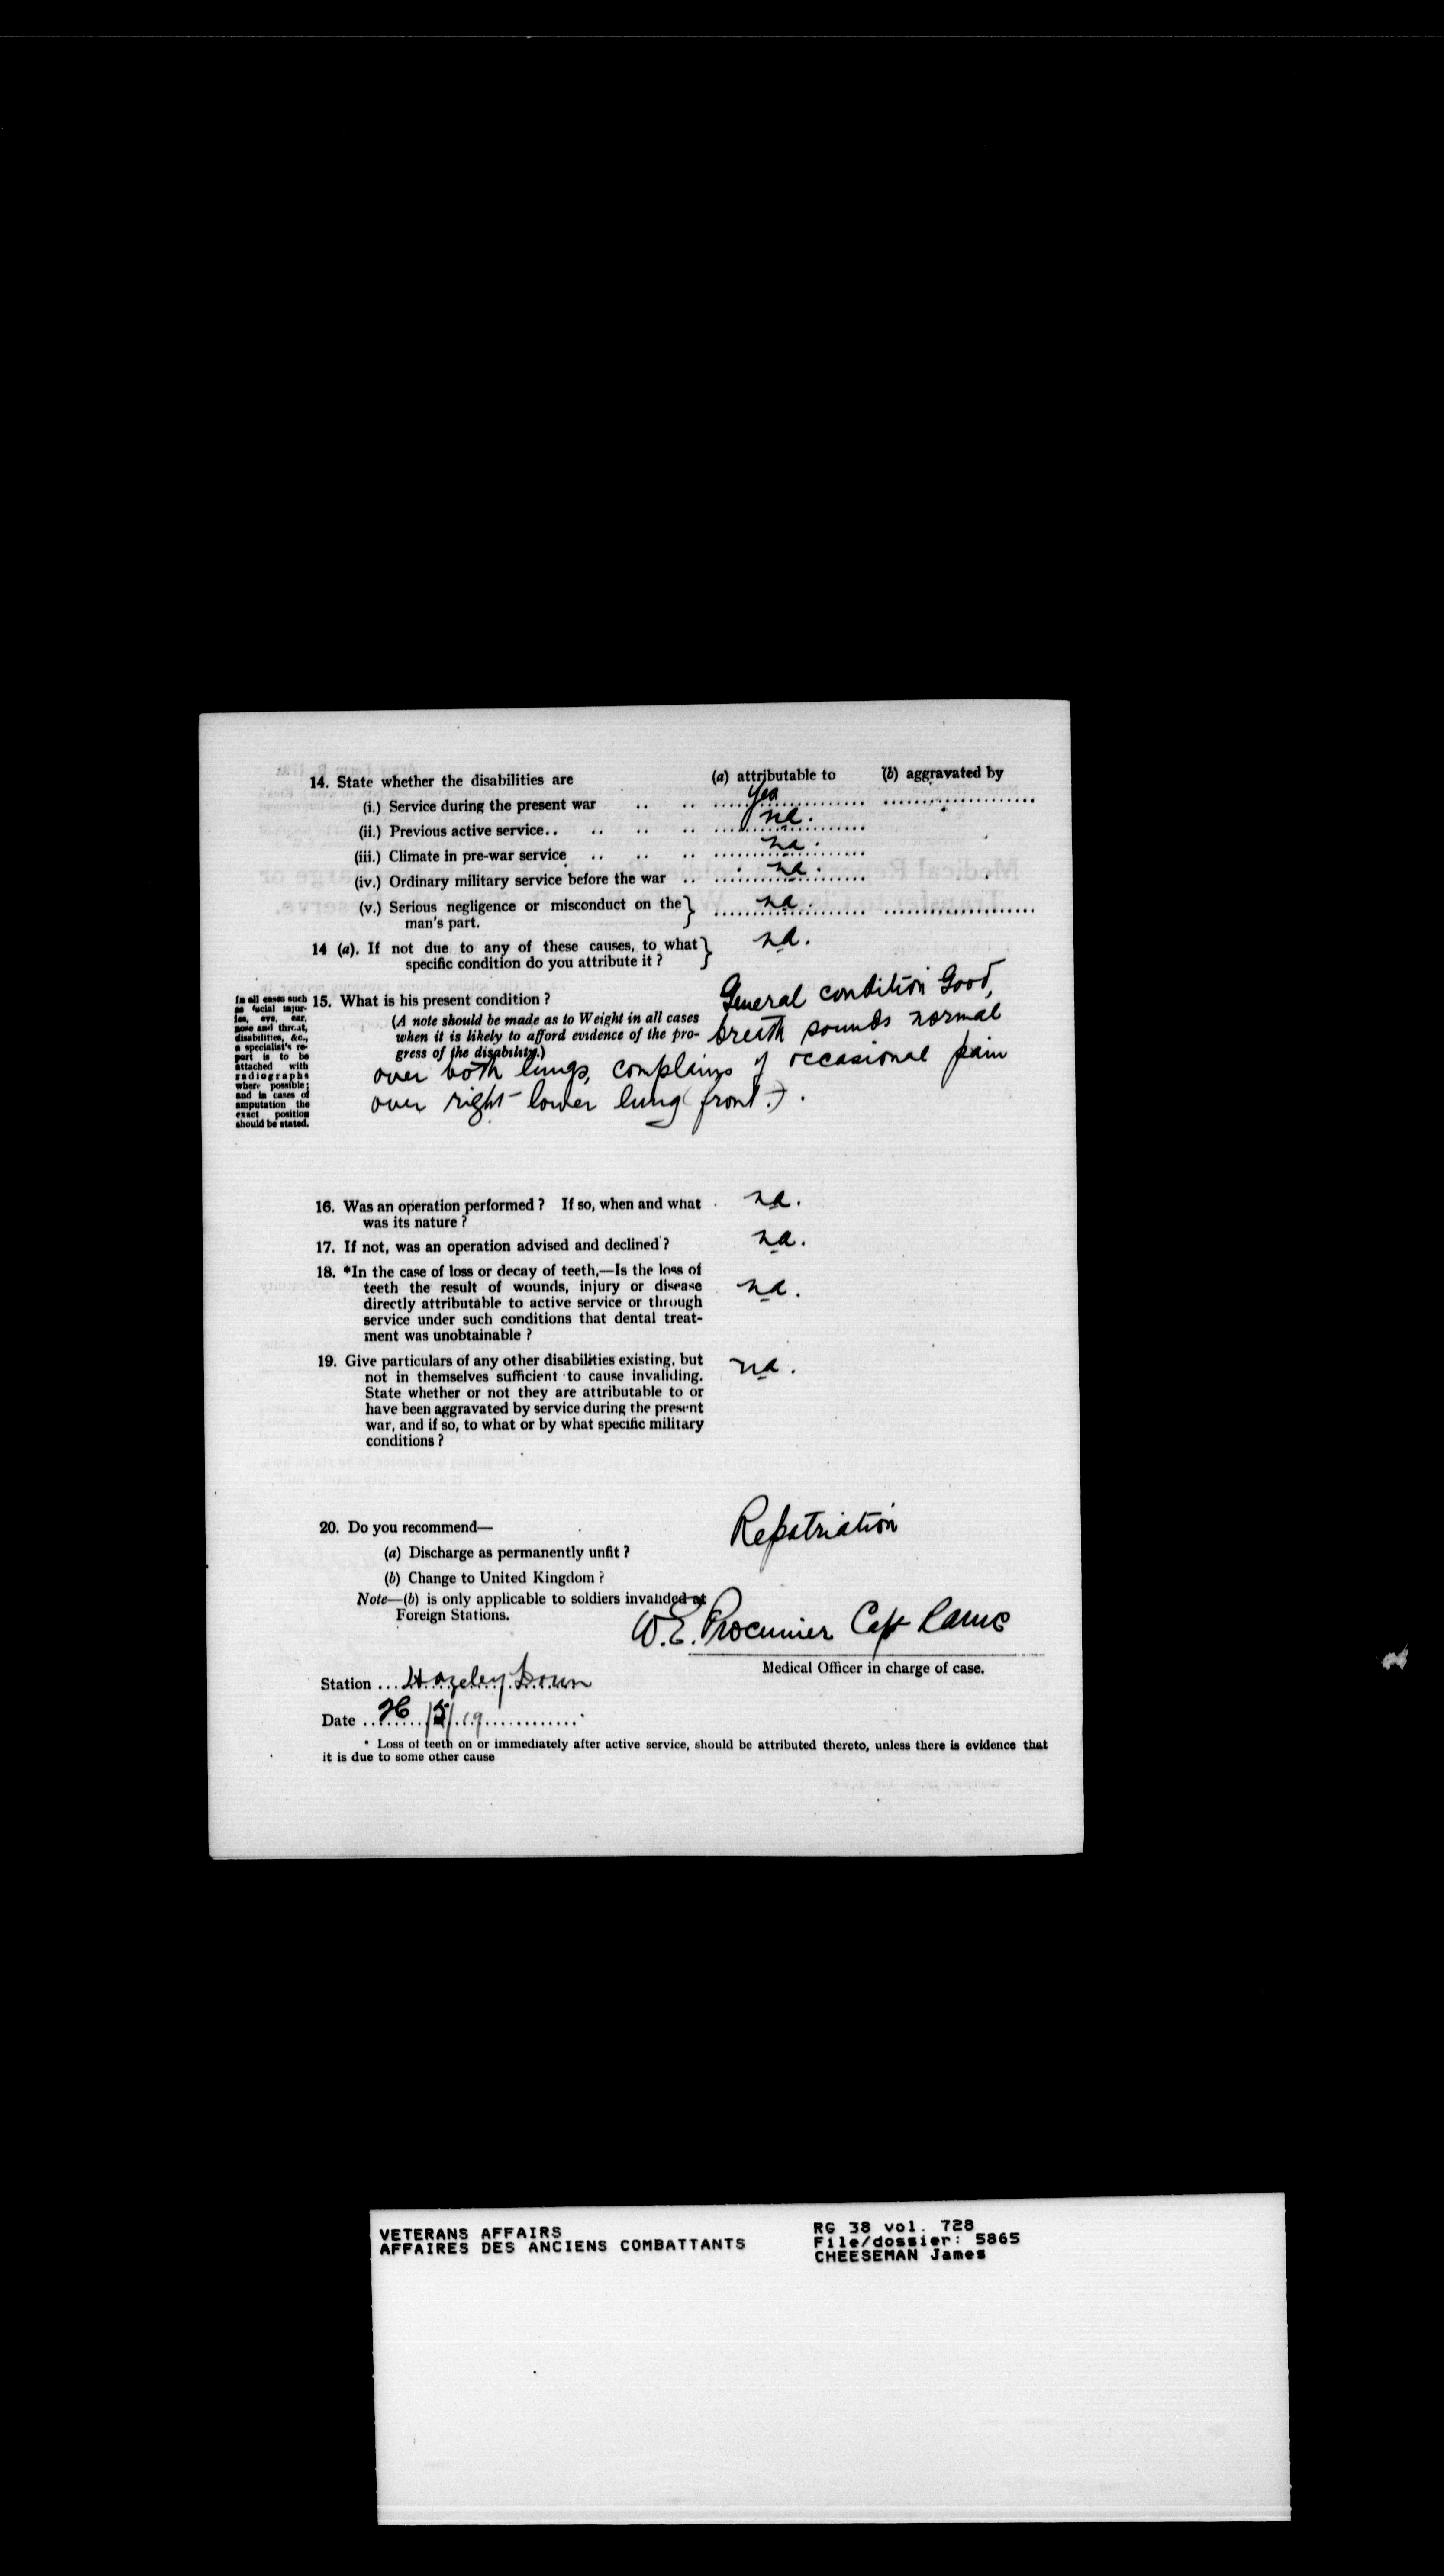 14. State whether the disabilities are (a) attributable to (b) aggravated by
(i.) Service during the present war .. .. Yes
(ii.) Previous active service.. .. .. .. na.
(iii.) Climate in pre-war service .. .. .. na.
(iv.) Ordinary military service before the war .. na.
(v.) Serious negligence or misconduct on the } na.
man's part.
14 (a). If not due to any of these causes, to what } na.
specific condition do you attribute it ?
In all cases such
as facial injur-
ies, eye, ear,
nose and throat,
disabilities, &c.,
a specialist's re-
port is to be
attached with
radiographs
where possible;
and in cases of
amputation the
exact position
should be stated.
15. What is his present condition ? General condition Good,
(A note should be made as to Weight in all cases breath sounds normal
when it is likely to afford evidence of the pro-
gress of the disability.)
over both lungs, complains of occasional pain
over right lower lung (front.).
16. Was an operation performed ? If so, when and what na.
was its nature ?
17. If not, was an operation advised and declined ? na.
18. *In the case of loss or decay of teeth,—Is the loss of
teeth the result of wounds, injury or disease na.
directly attributable to active service or through
service under such conditions that dental treat-
ment was unobtainable ?
19. Give particulars of any other disabilities existing, but na.
not in themselves sufficient to cause invaliding.
State whether or not they are attributable to or
have been aggravated by service during the present
war, and if so, to what or by what specific military
conditions ?
20. Do you recommend— Repatriation
(a) Discharge as permanently unfit ?
(b) Change to United Kingdom ?
Note—(b) is only applicable to soldiers invalided at
Foreign Stations.
W.E. Procunier Capt Camc
Medical Officer in charge of case.
Station ... Hazeley Down
Date .. 26/5/19
* Loss of teeth on or immediately after active service, should be attributed thereto, unless there is evidence that
it is due to some other cause
VETERANS AFFAIRS
AFFAIRES DES ANCIENS COMBATTANTS
RG 38 vol. 728
File/dossier: 5865
CHEESEMAN James